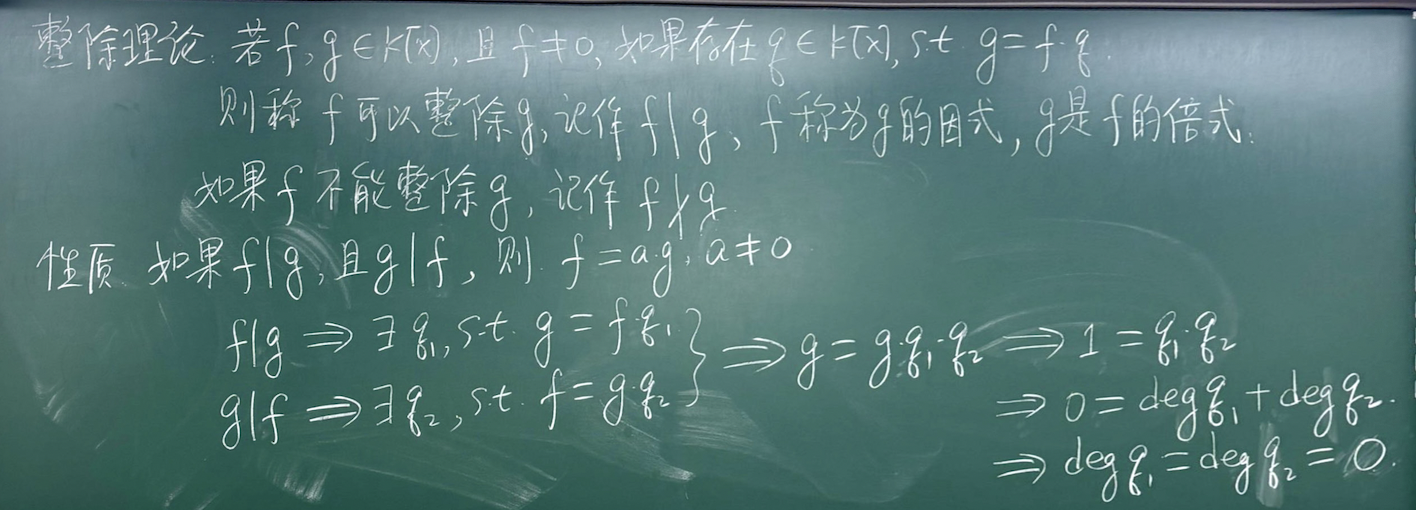 整除理论: 若f,g∈K[x],且f≠0,如果存在q∈K[x], s.t. g=f·q.
则称f可以整除g,记作f|g、f称为g的因式,g是f的倍式.
如果f不能整除g,记作f∤g
性质 如果f|g,且g|f,则 f=a·g, a≠0
f|g ⇒ ∃ q₁, s.t. g=f·q₁ } ⇒ g=g·q₁·q₂ ⇒ 1=q₁·q₂
g|f ⇒ ∃ q₂, s.t. f=g·q₂ ⇒ 0=deg q₁+deg q₂.
⇒ deg q₁=deg q₂=0.